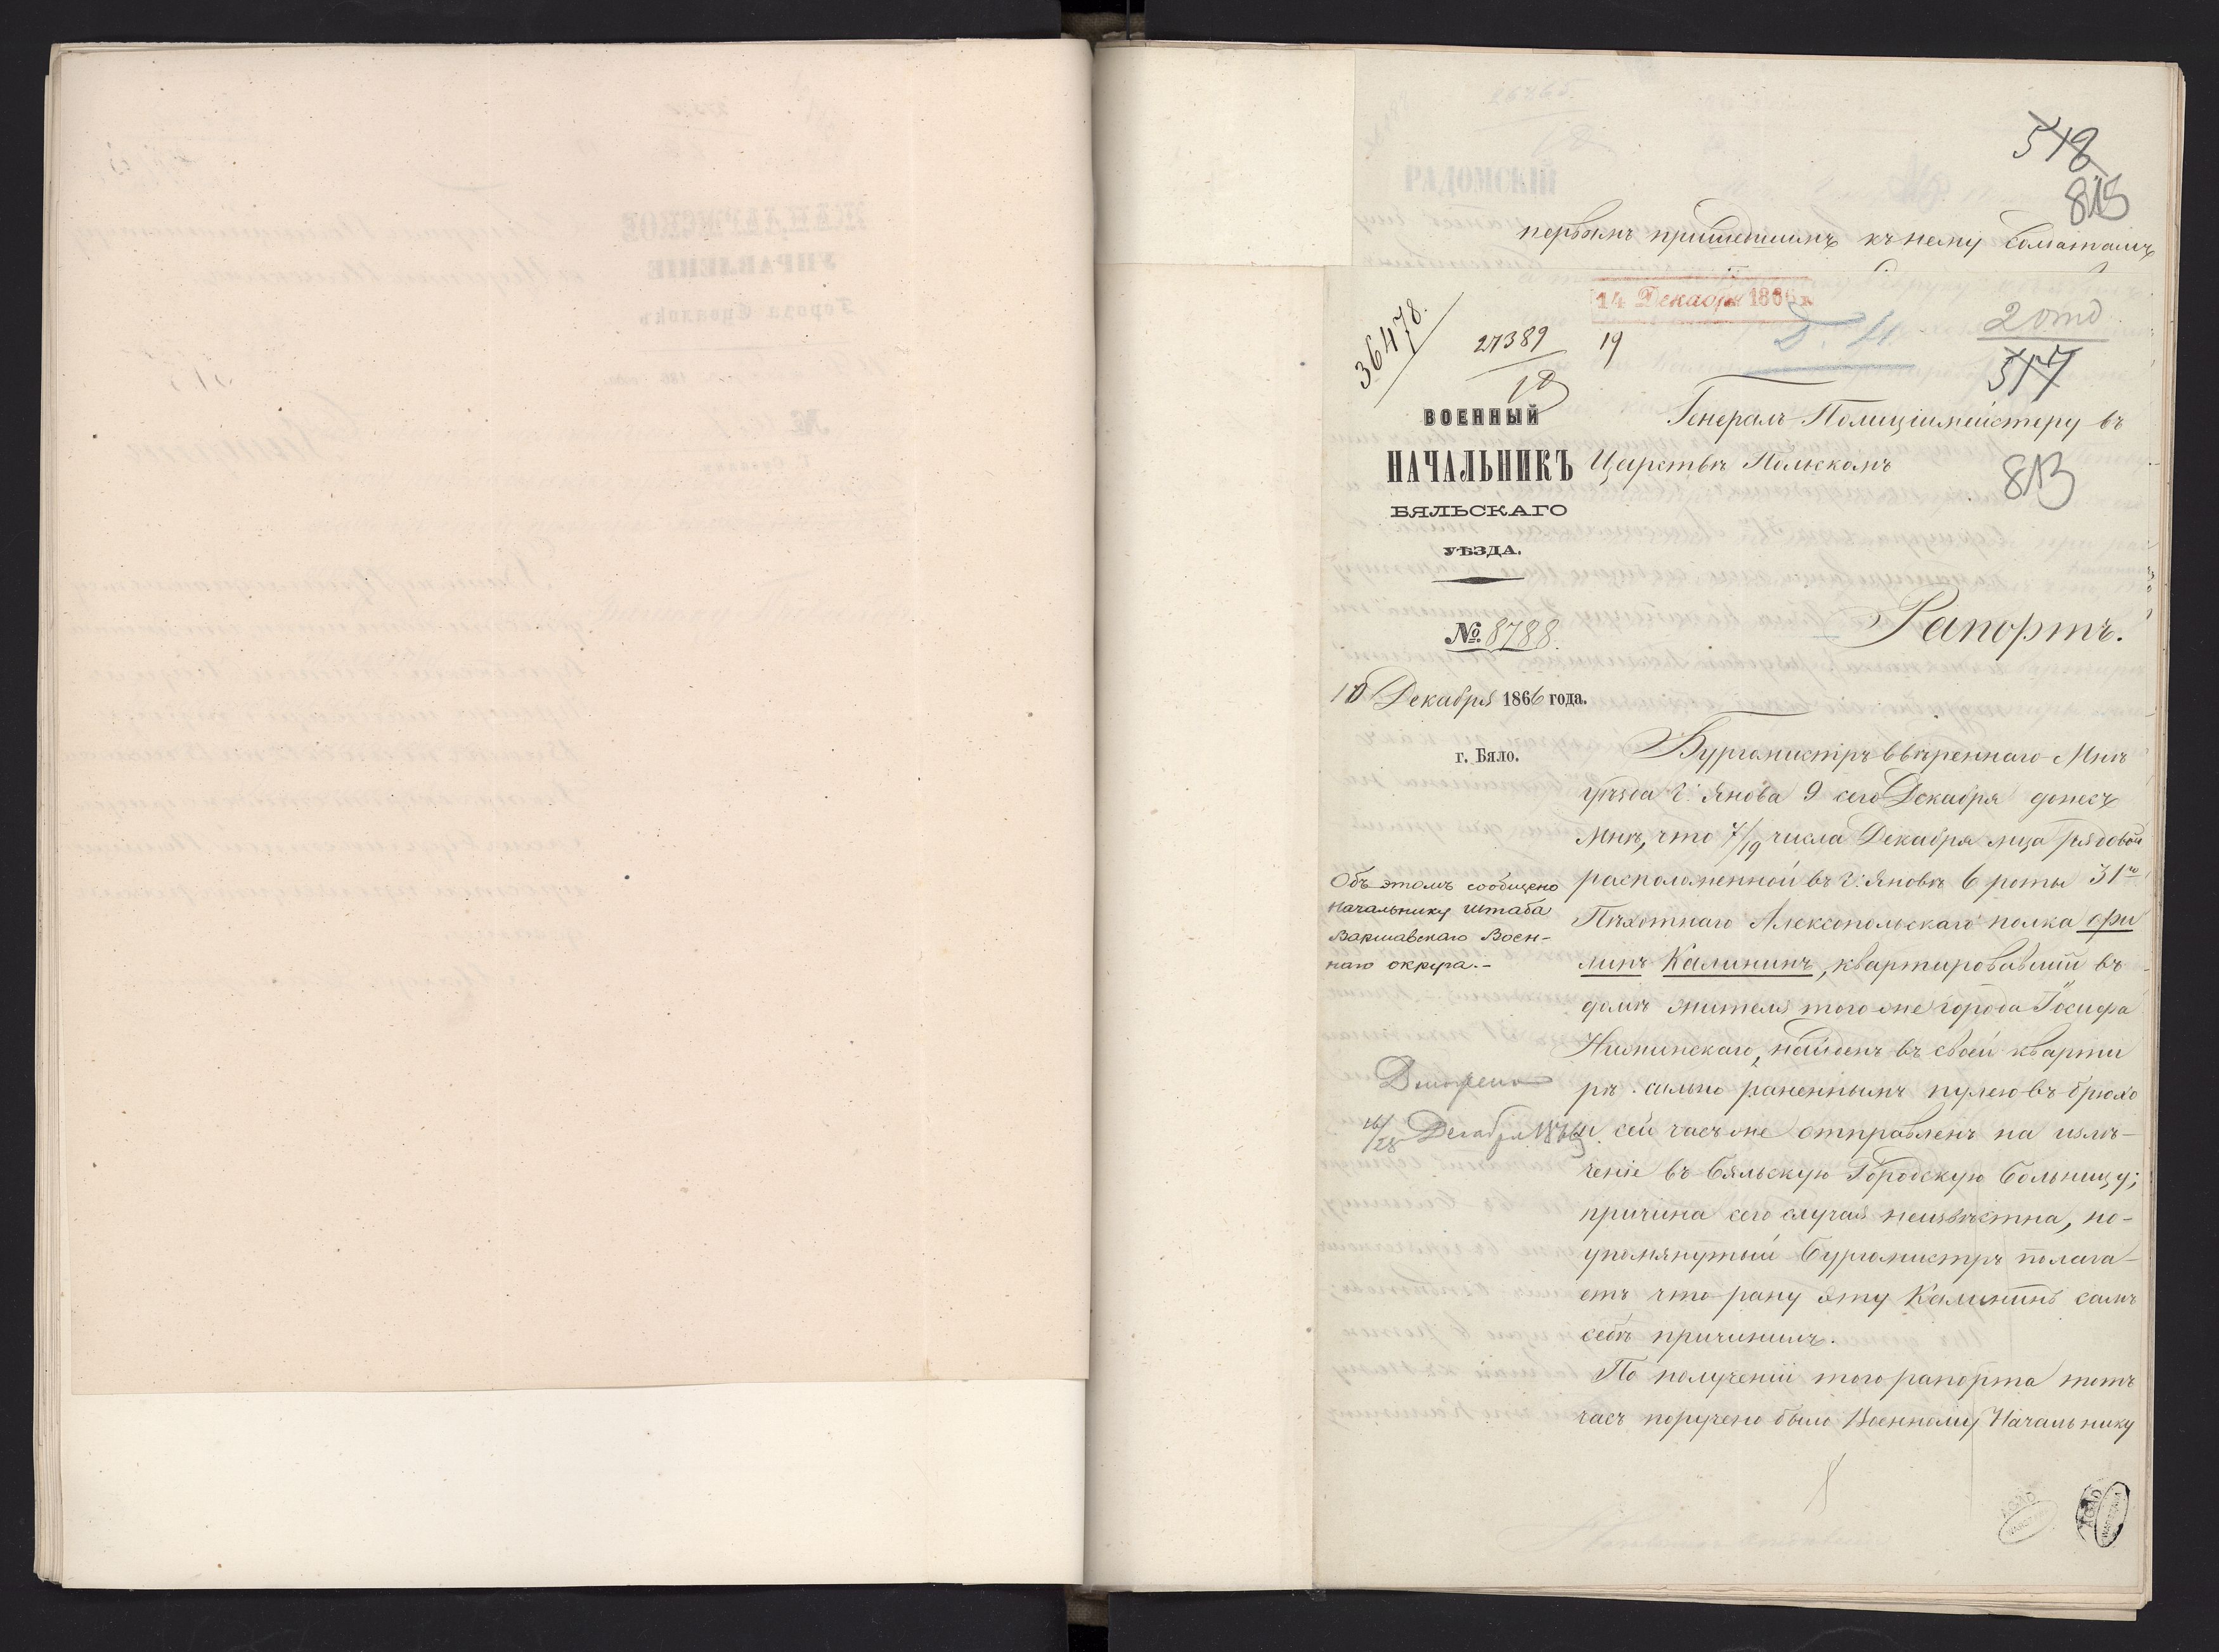 518
815
первымъ пришедшимъ къ нему солдатамъ
14 Декабря 1866 г.
36478.
27389
19
2 отд
517
ВОЕННЫЙ
НАЧАЛЬНИКЪ
БЯЛЬСКАГО
УѢЗДА.
№ 8788.
10 Декабря 1866 года.
г. Бяло.
Генералъ-Полиціймейстеру въ
Царствѣ Польскомъ
813
Рапортъ.
Бургомистръ ввѣреннаго Мнѣ
уѣзда г. Янова 9 сего Декабря донесъ
Мнѣ, что 7/19 числа Декабря м-ца рядовой
расположенной въ г. Яновѣ 6 роты 31го
Пѣхотнаго Алексопольскаго полка Фи
липъ Калининъ, квартировавшій въ
домѣ жителя того же города Іосифа
найденъ въ своей кварти
рѣ сильно раненнымъ пулею въ брюхо
и сей часъ же отправленъ на излѣ-
ченіе въ Бяльскую Городскую больницу;
причина сего случая неизвѣстна, но-
упомянутый Бургомистръ полага-
етъ что рану эту Калининъ самъ
себѣ причинилъ.
По полученіи того рапорта тотъ
часъ поручено было Военному Начальнику
Объ этомъ сообщено
Начальнику Штаба
Варшавскаго Воен-
наго округа.-
16/28 Декабря 1866
AGAD
AGAD
WARSZAWA